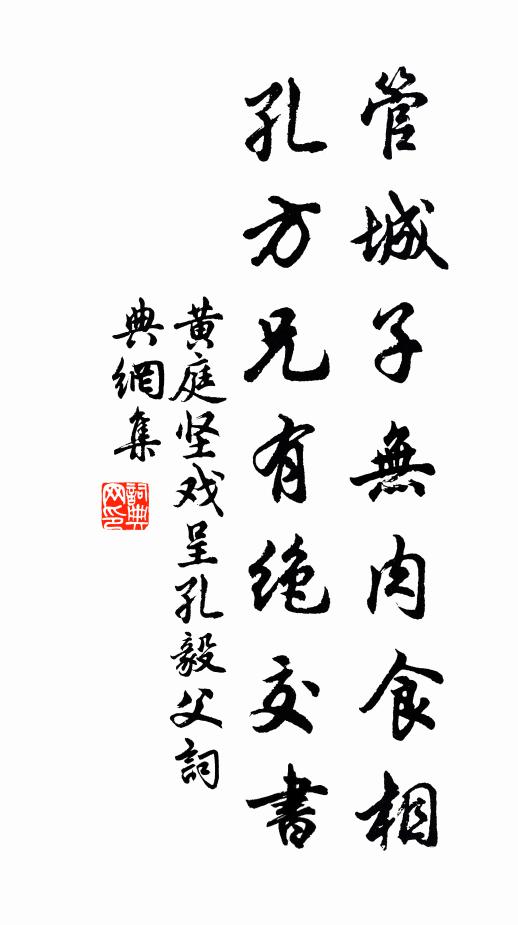 管城子無肉食相
孔方兄有絶交書
黄庭坚戏呈孔毅父詞
典網集
詞典
网印